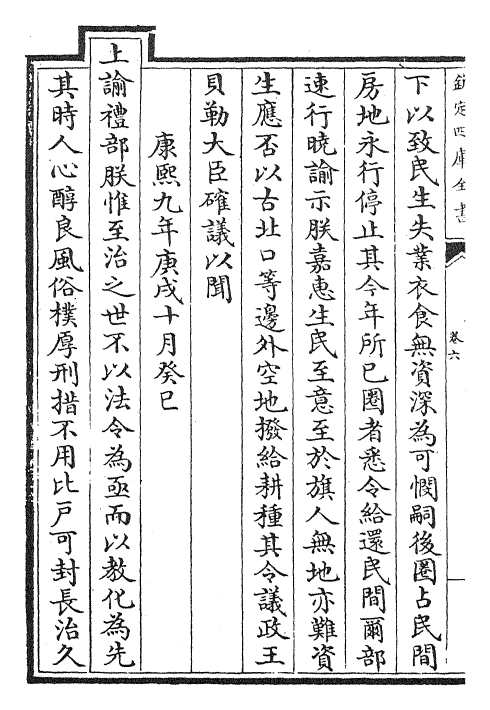 欽定四庫全書
卷六
下以致民生失業衣食無資深為可憫嗣後圏占民間
房地永行停止其今年所已圏者悉令給還民間爾部
速行曉諭示朕嘉惠生民至意至於旗人無地亦難資
生應否以古北口等邊外空地撥給耕種其令議政王
貝勒大臣確議以聞
康熙九年庚戌十月癸巳
上諭禮部朕惟至治之世不以法令為亟而以教化為先
其時人心醇良風俗樸厚刑措不用比戸可封長治久